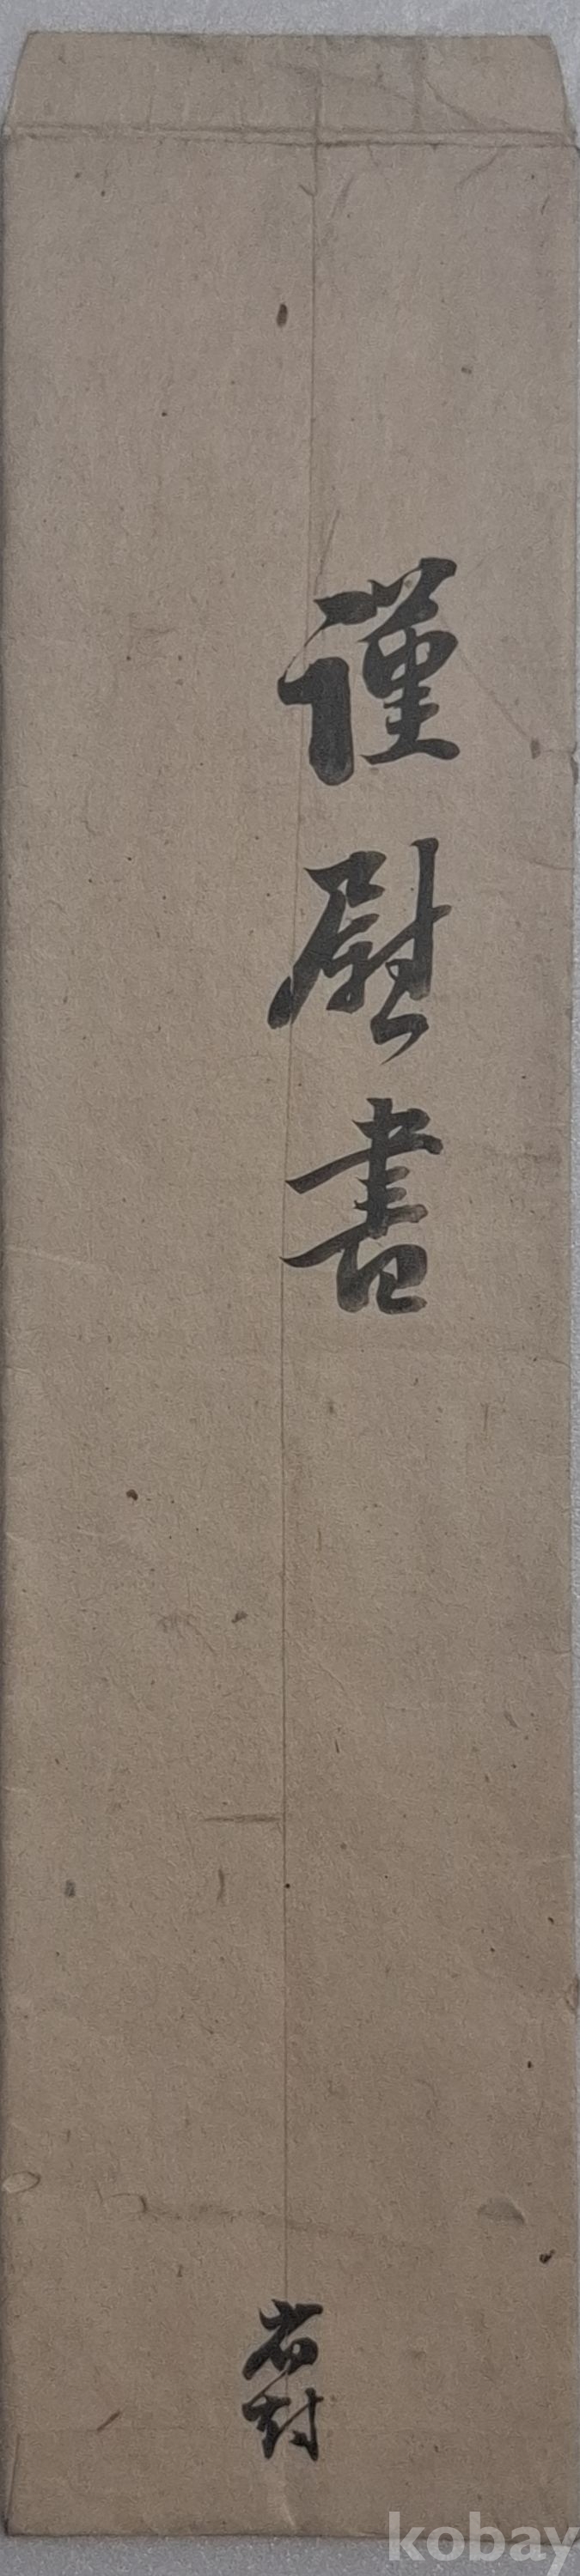 謹慰書
省封
kobay